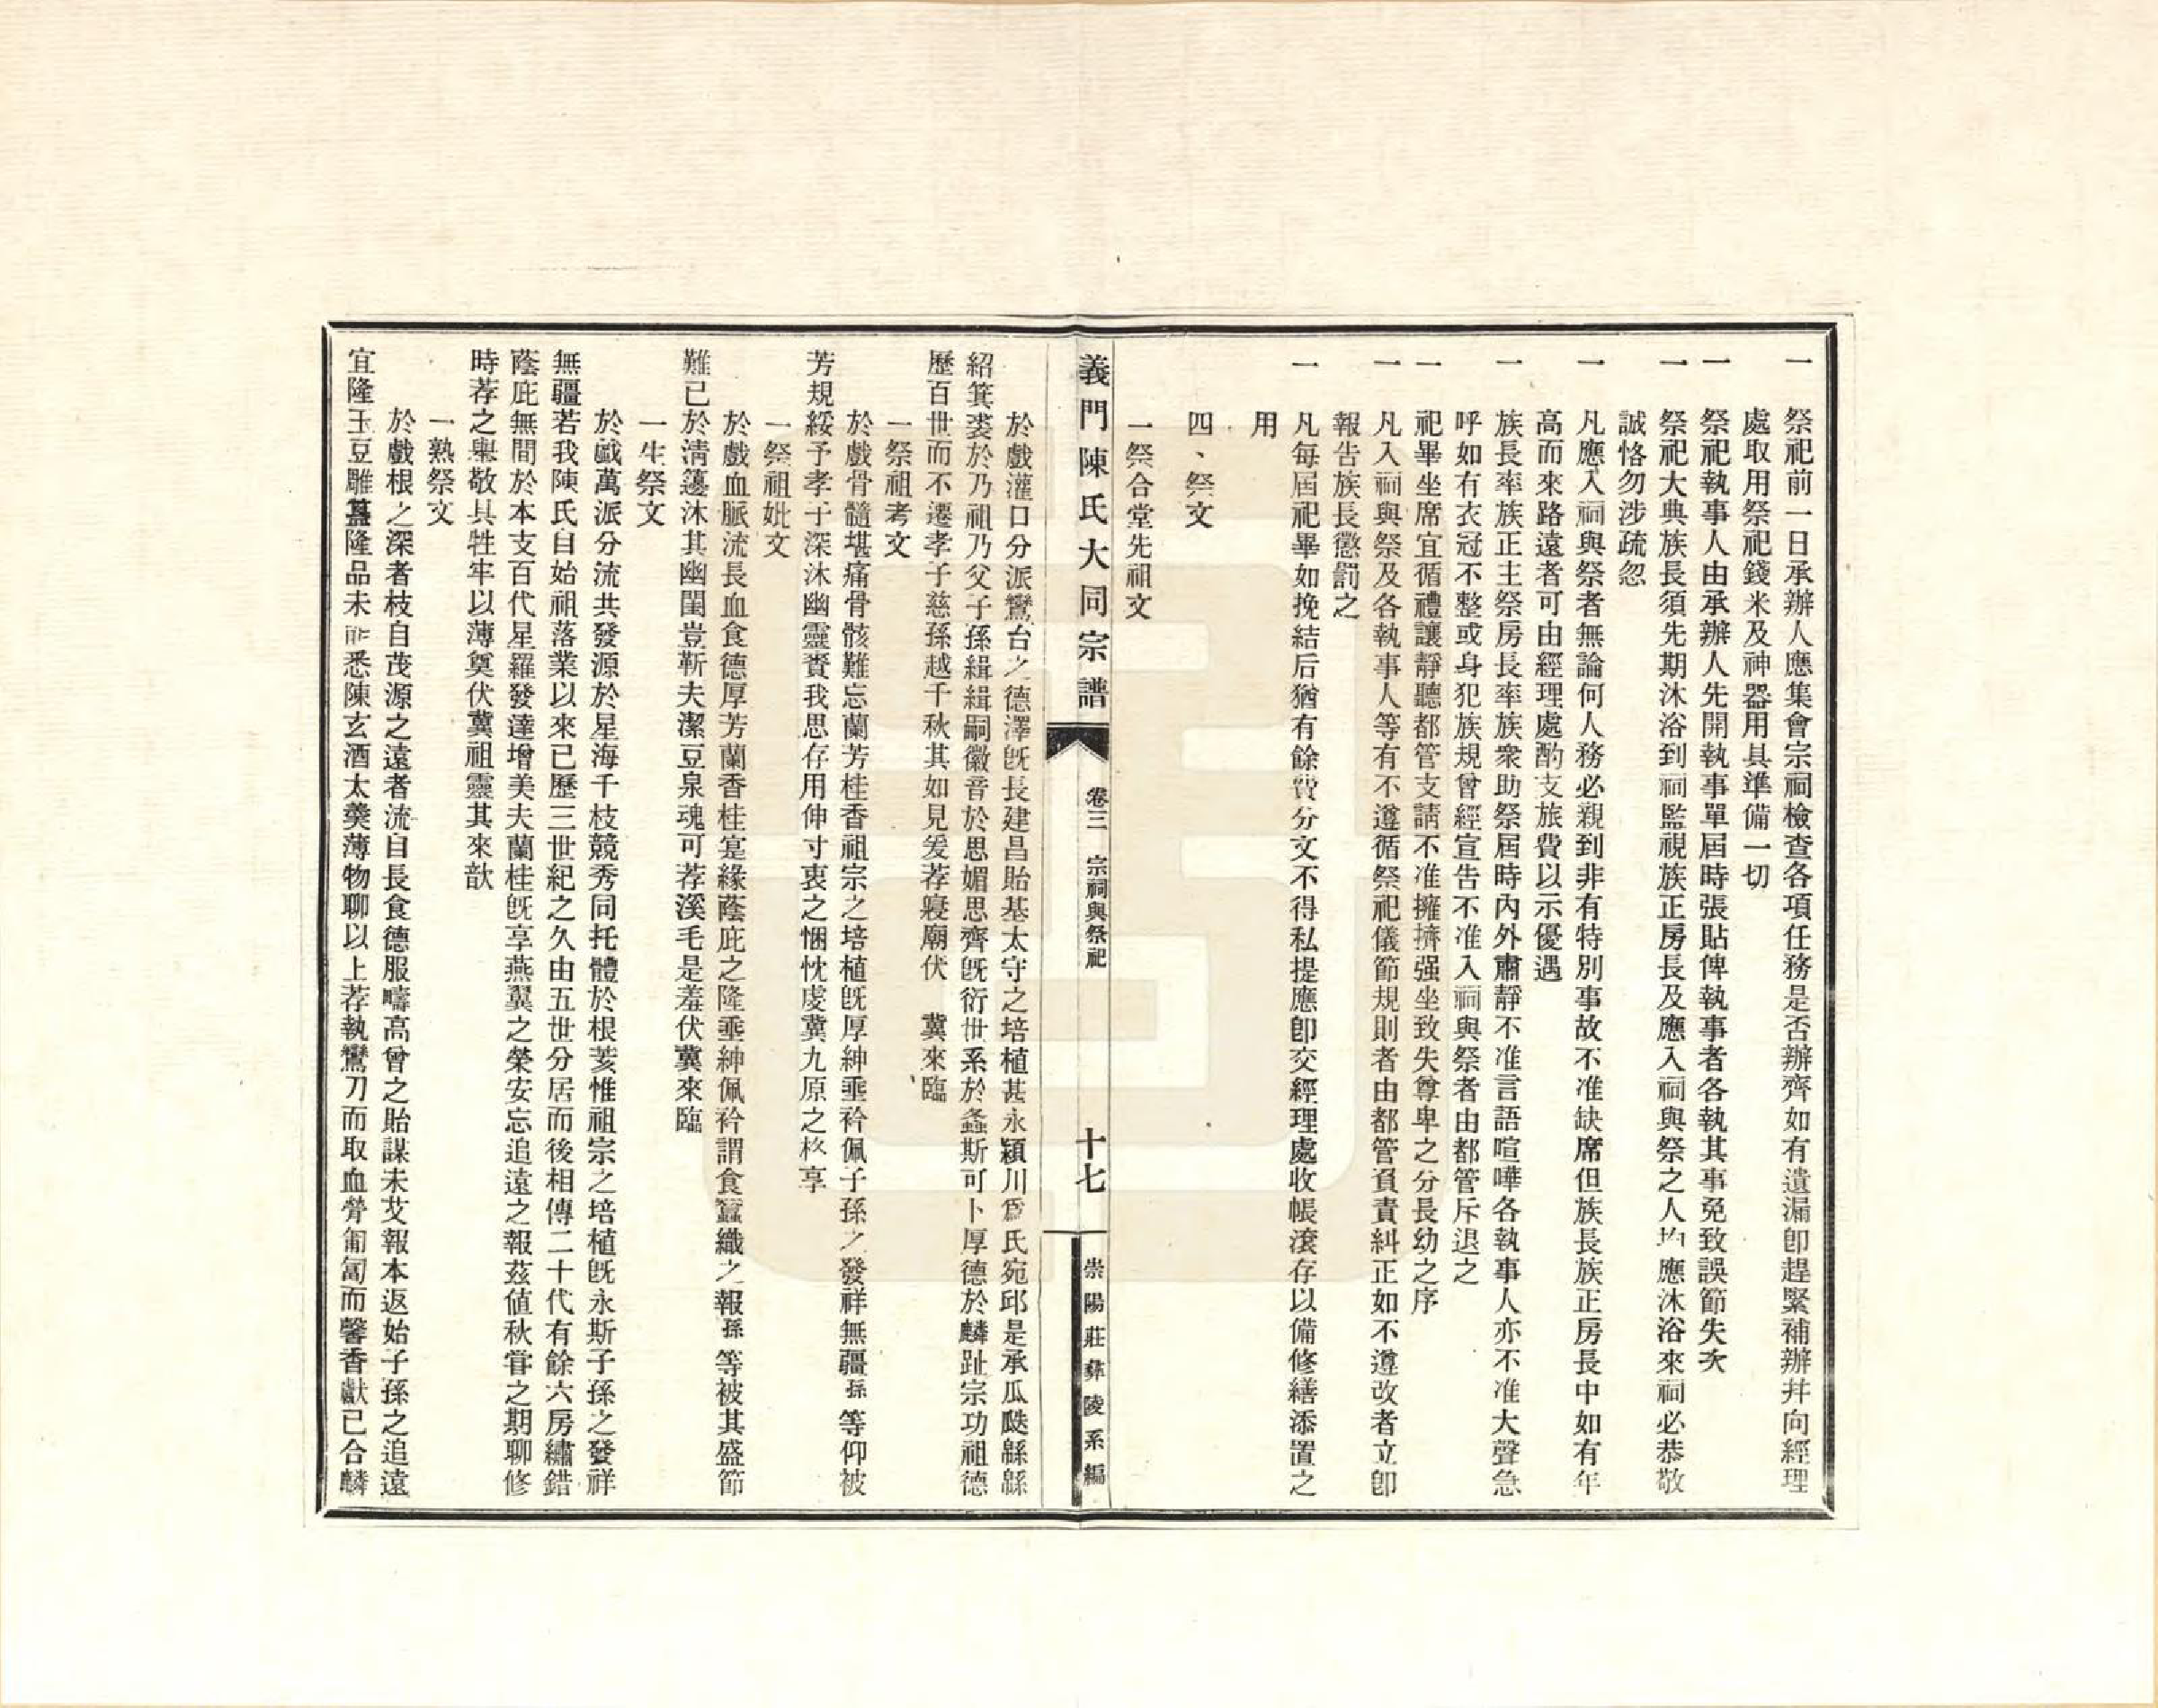 一　祭祀前一日承辦人應集會宗祠檢查各項任務是否辦齊如有遺漏卽趕緊補辦幷向經理
處取用祭祀錢米及神器用具準備一切
一　祭祀執事人由承辦人先開執事單屆時張貼俾執事者各執其事免致誤節失次
一　祭祀大典族長須先期沐浴到祠監視族正房長及應入祠與祭之人均應沐浴來祠必恭敬
誠恪勿涉疏忽
一　凡應入祠與祭者無論何人務必親到非有特別事故不准缺席但族長族正房長中如有年
高而來路遠者可由經理處酌支旅費以示優遇
一　族長率族正主祭房長率族衆助祭屆時內外肅靜不准言語喧嘩各執事人亦不准大聲急
呼如有衣冠不整或身犯族規曾經宣告不准入祠與祭者由都管斥退之
一　祀畢坐席宜循禮讓靜聽都管支請不准擁擠强坐致失尊卑之分長幼之序
一　凡入祠與祭及各執事人等有不遵循祭祀儀節規則者由都管負責糾正如不遵改者立卽
報告族長懲罰之
一　凡每屆祀畢如挽結后猶有餘費分文不得私提應卽交經理處收帳滾存以備修繕添置之
用
四、祭文
一祭合堂先祖文
義門陳氏大同宗譜　卷三　宗祠與祭祀　十七　崇陽莊彝陵系編
於戲灌口分派鸞台之德澤旣長建昌貽基太守之培植甚永潁川爲氏宛邱是承瓜瓞緜緜
紹箕裘於乃祖乃父子孫緝緝嗣徽音於思媚思齊旣衍世系於螽斯可卜厚德於麟趾宗功祖德
歷百世而不遷孝子慈孫越千秋其如見爰荐寢廟伏　冀來臨
一祭祖考文
於戲骨髓堪痛骨骸難忘蘭芳桂香祖宗之培植旣厚紳垂衿佩子孫之發祥無疆孫等仰被
芳規綏予孝子深沐幽靈賚我思存用伸寸衷之悃忱虔冀九原之格享
一祭祖妣文
於戲血脈流長血食德厚芳蘭香桂寔緣蔭庇之隆垂紳佩衿謂食蠶織之報孫等被其盛節
難已於淸籩沐其幽閨豈靳夫潔豆泉魂可荐溪毛是羞伏冀來臨
一生祭文
於戲萬派分流共發源於星海千枝競秀同托體於根荄惟祖宗之培植旣永斯子孫之發祥
無疆若我陳氏自始祖落業以來已歷三世紀之久由五世分居而後相傳二十代有餘六房繡錯
蔭庇無間於本支百代星羅發達增美夫蘭桂旣享燕翼之榮安忘追遠之報茲值秋嘗之期聊修
時荐之舉敬具牲牢以薄奠伏冀祖靈其來歆
一熟祭文
於戲根之深者枝自茂源之遠者流自長食德服疇高曾之貽謀未艾報本返始子孫之追遠
宜隆玉豆雕簋隆品未能悉陳玄酒太羹薄物聊以上荐執鸞刀而取血膋匍匐而馨香獻已合麟